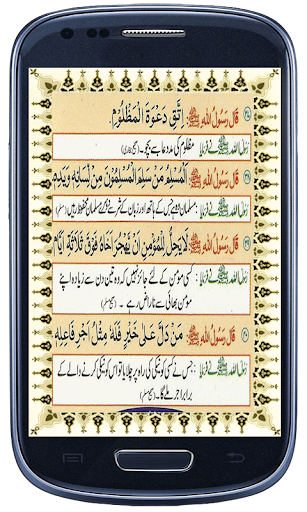 قَالَ رَسُوْلُ اللهِ ﷺ: اِتَّقِ دَعْوَةَ الْمَظْلُوْمِ۔
رسول اللہ ﷺ نے فرمایا: مظلوم کی بددعا سے بچو۔
قَالَ رَسُوْلُ اللهِ ﷺ: اَلْمُسْلِمُ مَنْ سَلِمَ الْمُسْلِمُوْنَ مِنْ لِّسَانِهٖ وَيَدِهٖ
رسول اللہ ﷺ نے فرمایا: مسلمان وہ ہے جس کے ہاتھ اور زبان کے ضرر سے مسلمان محفوظ رہیں (مسلم)
قَالَ رَسُوْلُ اللهِ ﷺ: لَا يَحِلُّ لِلْمُؤْمِنِ اَنْ يَّهْجُرَ اَخَاهُ فَوْقَ ثَلَاثَةِ اَيَّامٍ
رسول اللہ ﷺ نے فرمایا: کسی مومن کے لئے جائز نہیں کہ وہ تین دن سے زیادہ اپنے
مومن بھائی سے ناراض رہے۔ (صحیح مسلم)
قَالَ رَسُوْلُ اللهِ ﷺ: مَنْ دَلَّ عَلٰى خَيْرٍ فَلَهٗ مِثْلُ اَجْرِ فَاعِلِهٖ
رسول اللہ ﷺ نے فرمایا: جس نے کسی کو نیکی کی راہ پر چلایا تو اس کو نیکی کرنے والے کے
برابر اجر ملے گا۔ (صحیح مسلم)